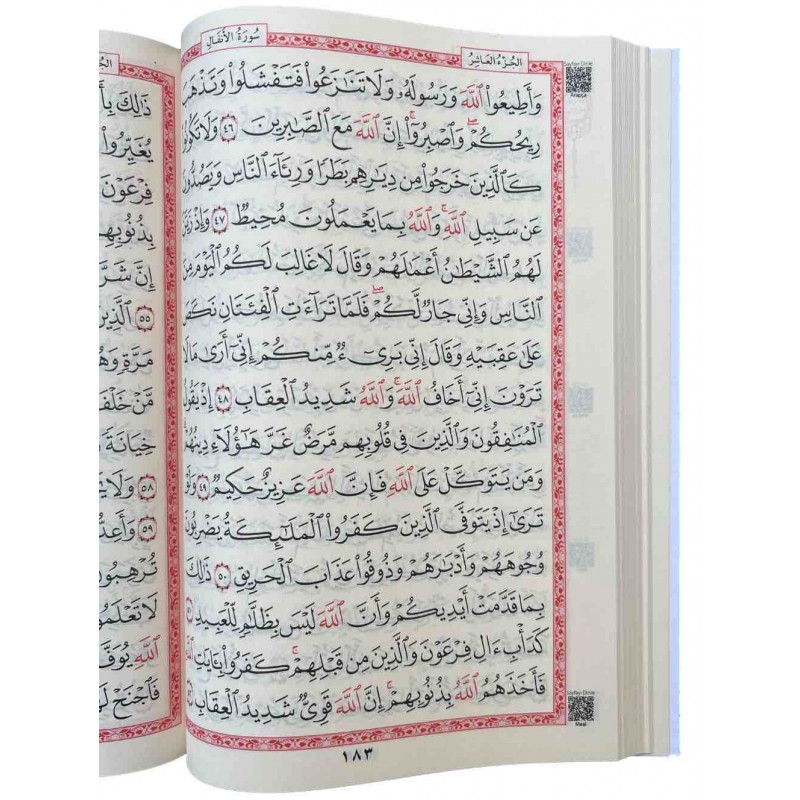 الجُزْءُ العَاشِرُ
سُورَةُ الأَنفَالِ
وَأَطِيعُوا۟ ٱللَّهَ وَرَسُولَهُۥ وَلَا تَنَـٰزَعُوا۟ فَتَفْشَلُوا۟ وَتَذْهَبَ
رِيحُكُمْۖ وَٱصْبِرُوٓا۟ۚ إِنَّ ٱللَّهَ مَعَ ٱلصَّـٰبِرِينَ ٤٦ وَلَا تَكُونُوا۟
كَٱلَّذِينَ خَرَجُوا۟ مِن دِيَـٰرِهِم بَطَرًا وَرِئَآءَ ٱلنَّاسِ وَيَصُدُّونَ
عَن سَبِيلِ ٱللَّهِۚ وَٱللَّهُ بِمَا يَعْمَلُونَ مُحِيطٌ ٤٧ وَإِذْ زَيَّنَ
لَهُمُ ٱلشَّيْطَـٰنُ أَعْمَـٰلَهُمْ وَقَالَ لَا غَالِبَ لَكُمُ ٱلْيَوْمَ مِنَ
ٱلنَّاسِ وَإِنِّى جَارٌ لَّكُمْۖ فَلَمَّا تَرَآءَتِ ٱلْفِئَتَانِ نَكَصَ
عَلَىٰ عَقِبَيْهِ وَقَالَ إِنِّى بَرِىٓءٌ مِّنكُمْ إِنِّىٓ أَرَىٰ مَا لَا
تَرَوْنَ إِنِّىٓ أَخَافُ ٱللَّهَۚ وَٱللَّهُ شَدِيدُ ٱلْعِقَابِ ٤٨ إِذْ يَقُولُ
ٱلْمُنَـٰفِقُونَ وَٱلَّذِينَ فِى قُلُوبِهِم مَّرَضٌ غَرَّ هَـٰٓؤُلَآءِ دِينُهُمْۗ
وَمَن يَتَوَكَّلْ عَلَى ٱللَّهِ فَإِنَّ ٱللَّهَ عَزِيزٌ حَكِيمٌ ٤٩ وَلَوْ
تَرَىٰٓ إِذْ يَتَوَفَّى ٱلَّذِينَ كَفَرُوا۟ ٱلْمَلَـٰٓئِكَةُ يَضْرِبُونَ
وُجُوهَهُمْ وَأَدْبَـٰرَهُمْ وَذُوقُوا۟ عَذَابَ ٱلْحَرِيقِ ٥٠ ذَٰلِكَ
بِمَا قَدَّمَتْ أَيْدِيكُمْ وَأَنَّ ٱللَّهَ لَيْسَ بِظَلَّـٰمٍ لِّلْعَبِيدِ ٥١
كَدَأْبِ ءَالِ فِرْعَوْنَ وَٱلَّذِينَ مِن قَبْلِهِمْۚ كَفَرُوا۟ بِـَٔايَـٰتِ ٱللَّهِ
فَأَخَذَهُمُ ٱللَّهُ بِذُنُوبِهِمْۗ إِنَّ ٱللَّهَ قَوِىٌّ شَدِيدُ ٱلْعِقَابِ ٥٢
١٨٣
Sayfayı Dinle
Arapça
Sayfayı Dinle
Meal
ذَٰلِكَ
يُغَيِّرُوا۟
فِرْعَوْنَ
بِذُنُوبِهِمْ
إِنَّ شَرَّ
٥٥ ٱلَّذِينَ
مَرَّةٍ
مَّنْ
خِيَانَةً
٥٨
٥٩
تُرْهِبُونَ
لَا
ٱللَّهُ
فَٱجْنَحْ